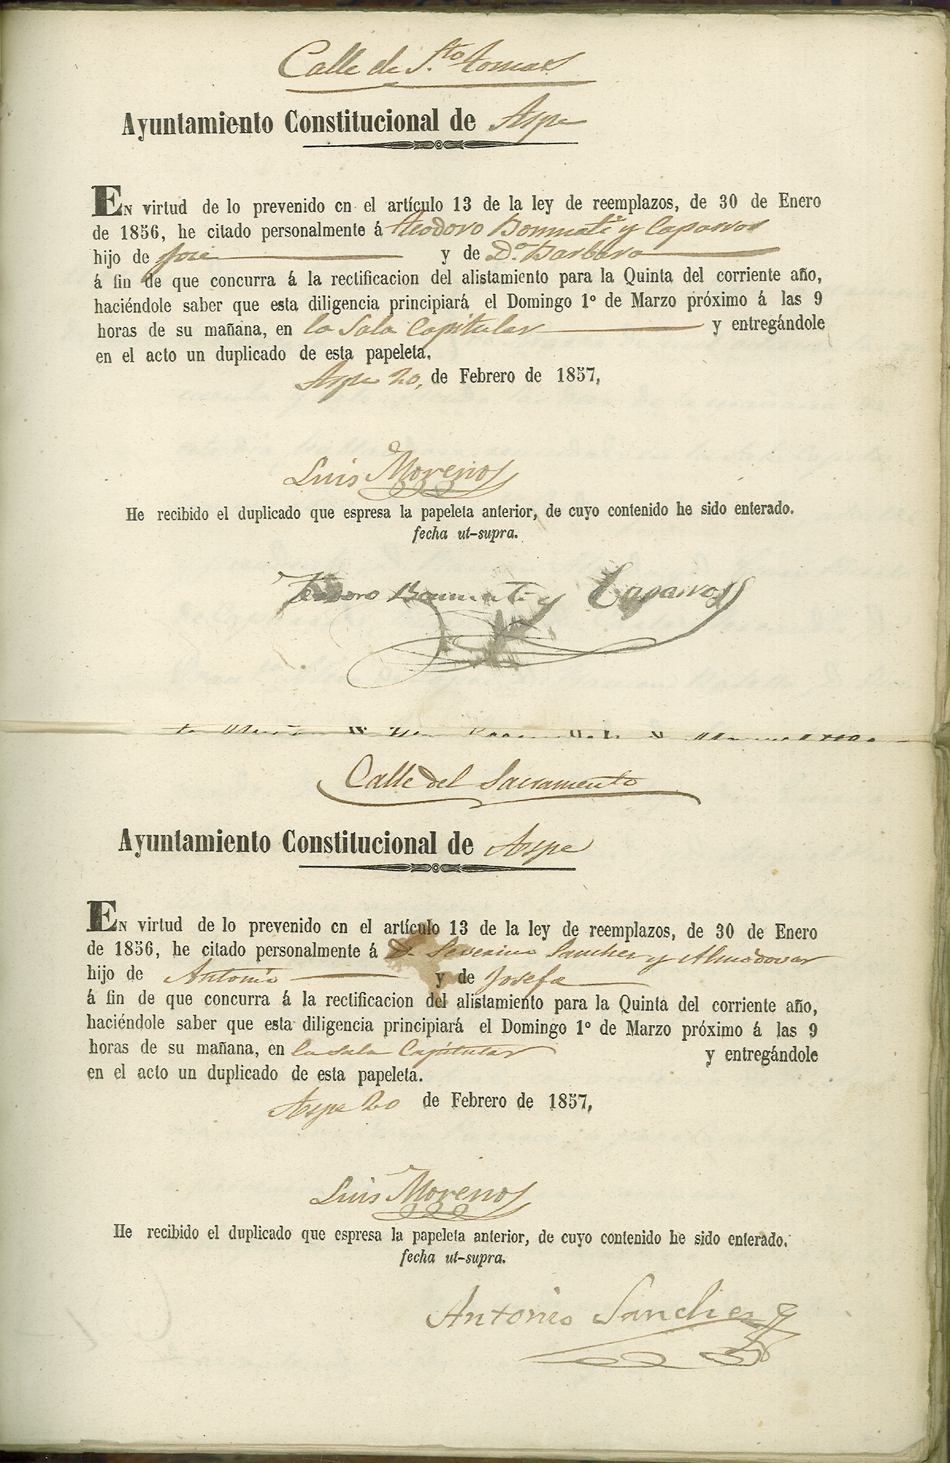 Calle de S.to tomas
Ayuntamiento Constitucional de Aspe
EN virtud de lo prevenido en el artículo 13 de la ley de reemplazos, de 30 de Enero
de 1856, he citado personalmente á teodoro Bonmati y Caparros
hijo de José y de D.a Barbara
á fin de que concurra á la rectificacion del alistamiento para la Quinta del corriente año,
haciéndole saber que esta diligencia principiará el Domingo 1º de Marzo próximo á las 9
horas de su mañana, en la Sala Capitular y entregándole
en el acto un duplicado de esta papeleta.
Aspe 20, de Febrero de 1857,
Luis Moreno
He recibido el duplicado que espresa la papeleta anterior, de cuyo contenido he sido enterado.
fecha ut-supra.
Teodoro Bonmati y Caparros
Calle del Sacramento
Ayuntamiento Constitucional de Aspe
EN virtud de lo prevenido en el artículo 13 de la ley de reemplazos, de 30 de Enero
de 1856, he citado personalmente á D. Severino Sanchez y Almodovar
hijo de Antonio y de Josefa
á fin de que concurra á la rectificacion del alistamiento para la Quinta del corriente año,
haciéndole saber que esta diligencia principiará el Domingo 1º de Marzo próximo á las 9
horas de su mañana, en la sala Capitular y entregándole
en el acto un duplicado de esta papeleta.
Aspe 20 de Febrero de 1857,
Luis Moreno
He recibido el duplicado que espresa la papeleta anterior, de cuyo contenido he sido enterado.
fecha ut-supra.
Antonio Sanchez